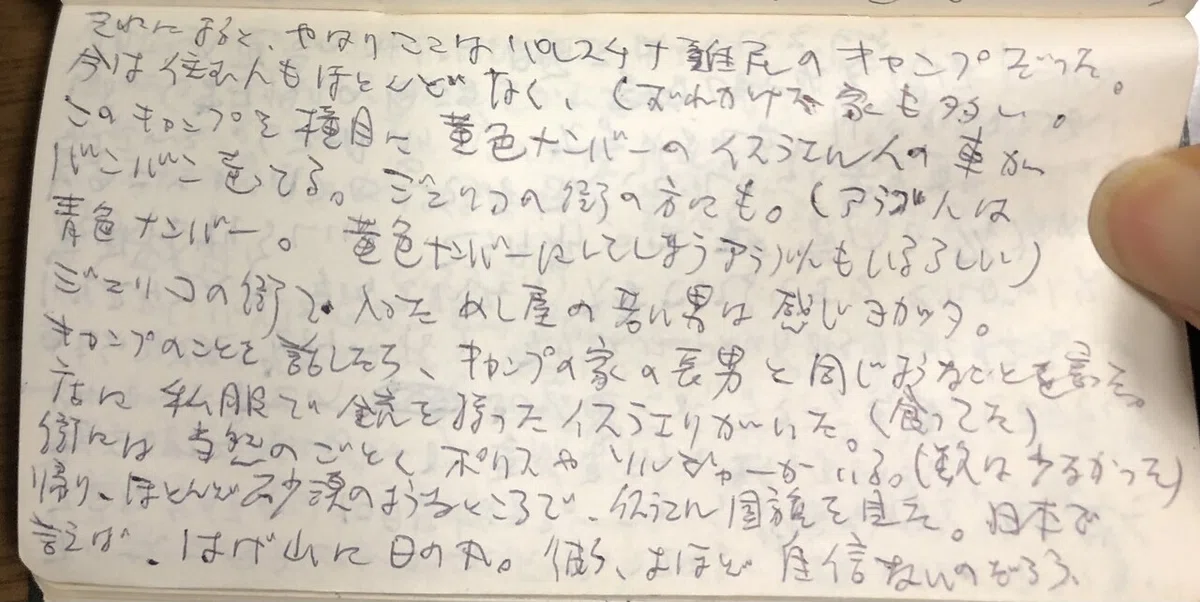 それによると、やはりここはパレスチナ難民のキャンプだった。
今は住む人もほとんどなく、くずれかけた家も多い。
このキャンプを横目に黄色ナンバーのイスラエル人の車が
バンバン走ってる。ジェリコの街の方にも。(アラブ人は
青色ナンバー。黄色ナンバーにしてしまうアラブ人もいるらしい)
ジェリコの街で入っためし屋の若い男は感じヨカッタ。
キャンプのことを話したら、キャンプの家の長男と同じようなことを言った。
店に私服で銃を持ったイスラエリがいた。(食ってた)
街には当然のごとくポリスやソルジャーがいる。(数は少なかった)
帰り、ほとんど砂漠のようなところで、イスラエル国旗を見た。日本で
言えば、はげ山に日の丸。彼ら、よほど自信ないのだろう、